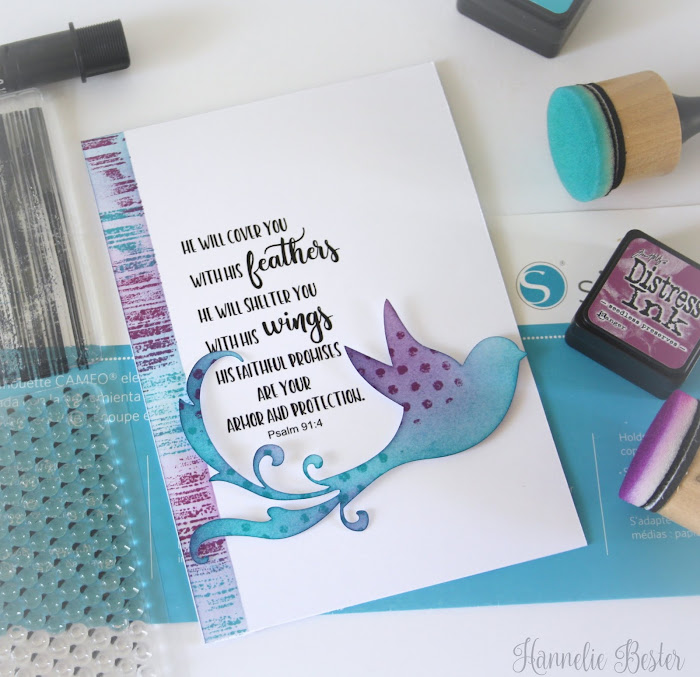 HE WILL COVER YOU
WITH HIS feathers
HE WILL SHELTER YOU
WITH HIS wings
HIS FAITHFUL PROMISES
ARE YOUR
ARMOR AND PROTECTION.
Psalm 91:4
S
Distress
Ink
seedless preserves
Silhouette CAMEO®
S'adapte
médias
Hannelie Bester